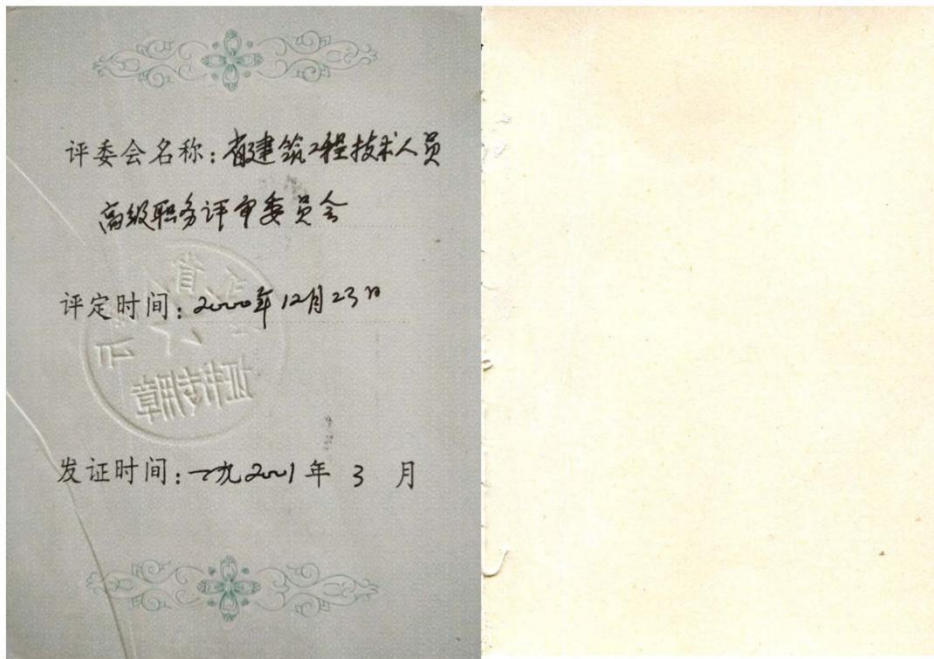 评委会名称：省建筑工程技术人员
高级职务评审委员会
评定时间：2000年12月23日
发证时间：一九2001年 3 月
省
证件专用章